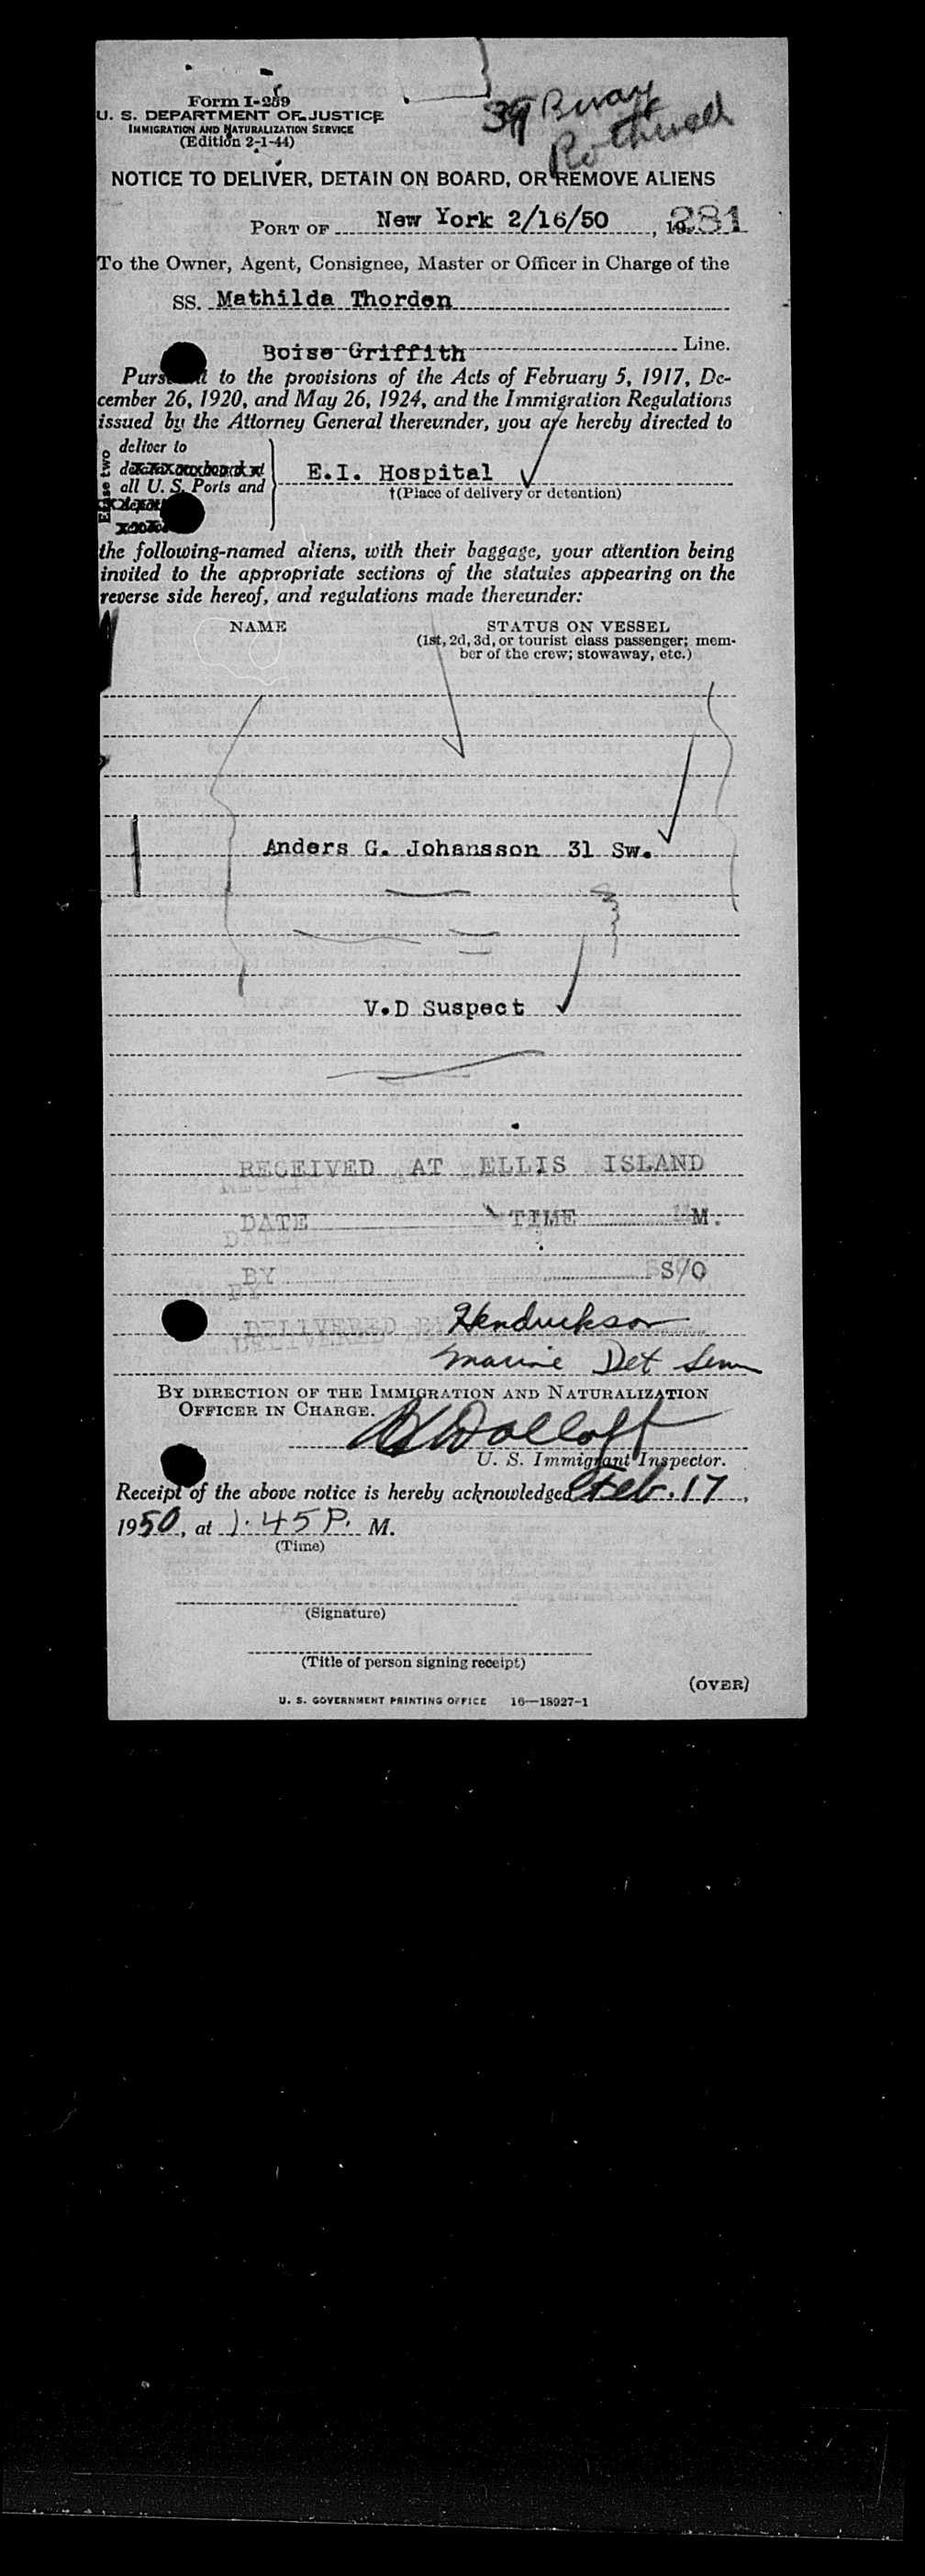 Form I-259
U. S. DEPARTMENT OF JUSTICE
IMMIGRATION AND NATURALIZATION SERVICE
(Edition 2-1-44)
39 Bway
Rothwell
NOTICE TO DELIVER, DETAIN ON BOARD, OR REMOVE ALIENS
PORT OF New York 2/16/50, 19 281
To the Owner, Agent, Consignee, Master or Officer in Charge of the
SS. Mathilda Thorden
Boise Griffith Line.
to the provisions of the Acts of February 5, 1917, De-
cember 26, 1920, and May 26, 1924, and the Immigration Regulations
issued by the Attorney General thereunder, you are hereby directed to
two
deliver to
all U. S. Ports and
E.I. Hospital
†(Place of delivery or detention)
the following-named aliens, with their baggage, your attention being
invited to the appropriate sections of the statutes appearing on the
reverse side hereof, and regulations made thereunder:
NAME
STATUS ON VESSEL
(1st, 2d, 3d, or tourist class passenger; mem-
ber of the crew; stowaway, etc.)
Anders G. Johansson 31 Sw.
V.D Suspect
RECEIVED AT ELLIS ISLAND
DATE TIME M.
BY S/O
DELIVERED Hendrickson
Marine Det
BY DIRECTION OF THE IMMIGRATION AND NATURALIZATION
OFFICER IN CHARGE.
U. S. Immigrant Inspector.
Receipt of the above notice is hereby acknowledged Feb. 17,
1950, at 1.45 P. M.
(Time)
(Signature)
(Title of person signing receipt)
(OVER)
U. S. GOVERNMENT PRINTING OFFICE 16—18927-1